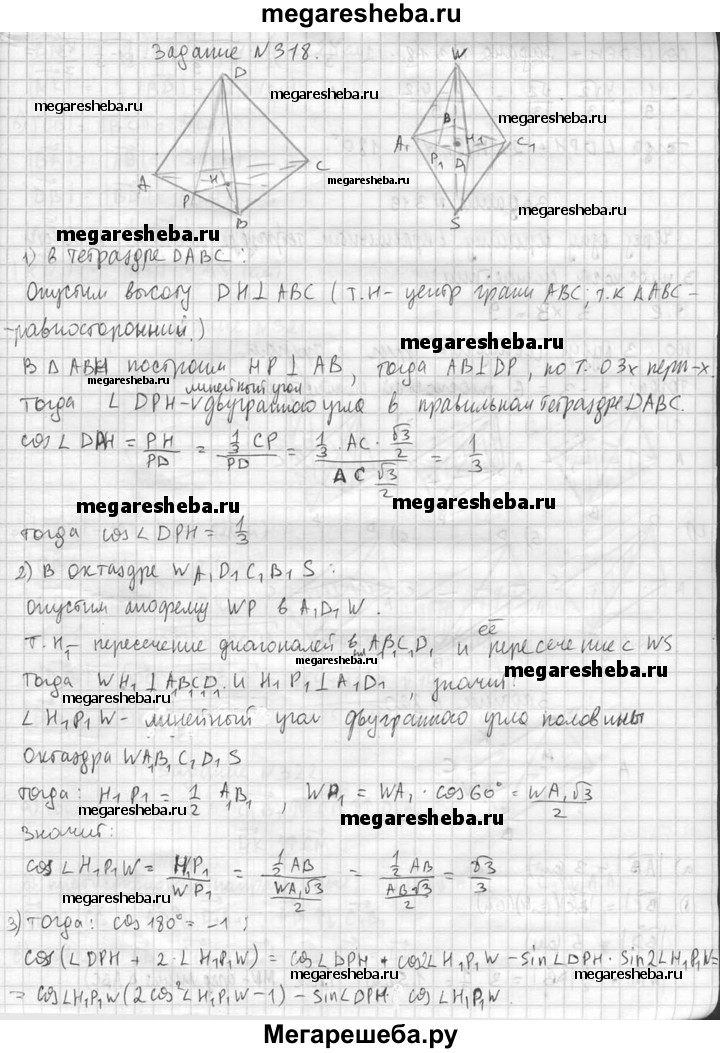 megaresheba.ru
Задание №318.
megaresheba.ru
megaresheba.ru
D
A
C
H
P
B
megaresheba.ru
W
B₁
A₁
H₁
C₁
P₁
D₁
S
megaresheba.ru
megaresheba.ru
1) В тетраэдре DABC:
Опустим высоту DH⊥ABC (т.H- центр грани ABC, т.к ΔABC-
-равносторонний.)
megaresheba.ru
В ΔABH построим HP⊥AB, тогда AB⊥DP, по т. о 3х перп-х.
megaresheba.ru
линейный угол
Тогда ∠DPH-V двугранного угла в правильном тетраэдре DABC.
cos∠DPH = PH/PD = (1/3 CP)/PD = (1/3 · AC · √3/2)/(AC √3/2) = 1/3
megaresheba.ru
megaresheba.ru
тогда cos∠DPH = 1/3
2) В октаэдре WA₁D₁C₁B₁S:
опустим апофему WP в A₁D₁W.
т. H₁- пересечение диагоналей в A₁B₁C₁D₁ и её пересечение с WS
megaresheba.ru
megaresheba.ru
Тогда WH₁⊥A₁B₁C₁D₁ и H₁P₁⊥A₁D₁, значит:
∠H₁P₁W- линейный угол двугранного угла половины
Октаэдра WA₁B₁C₁D₁S
тогда: H₁P₁ = 1/2 A₁B₁, WP₁ = WA₁ · cos60° = WA₁√3/2
megaresheba.ru
megaresheba.ru
Значит:
cos∠H₁P₁W = H₁P₁/WP₁ = (1/2 AB)/(WA₁√3/2) = (1/2 AB)/(AB√3/2) = √3/3
megaresheba.ru
megaresheba.ru
3) Тогда: cos180° = -1;
cos(∠DPH + 2·∠H₁P₁W) = cos∠DPH · cos2∠H₁P₁W - sin∠DPH · sin2∠H₁P₁W=
megaresheba.ru
= cos∠H₁P₁W(2cos²∠H₁P₁W-1) - sin∠DPH · cos∠H₁P₁W
megaresheba.ru
Мегарешеба.ру